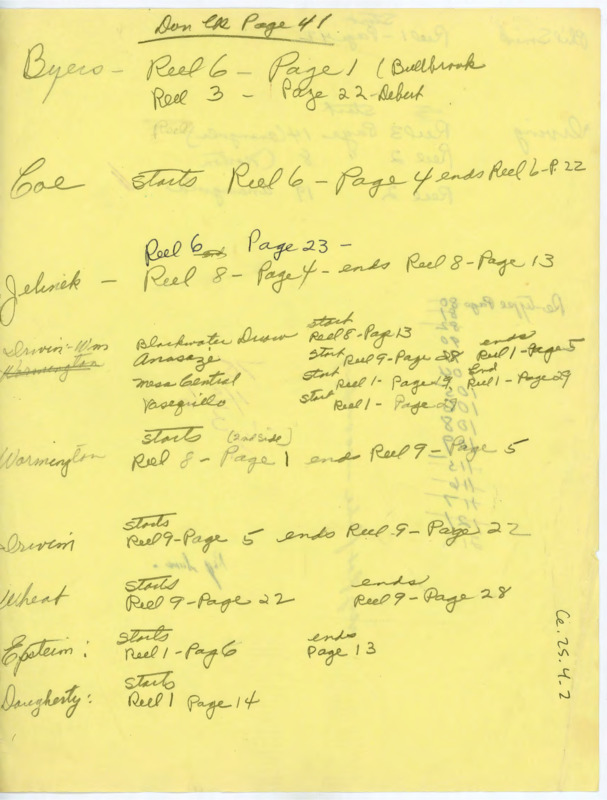 Don CR Page 41
Byers - Reel 6 - Page 1 (Bullbrook
Reel 3 - Page 22 - Debert
Coe starts Reel 6 - Page 4 ends Reel 6 - P. 22
Reel 6 Page 23 -
Jelinek - Reel 8 - Page 4 - ends Reel 8 - Page 13
Irwin-Wms Blackwater Draw start Reel 8 - Page 13
Wormington Anasazi Start Reel 9 - Page 28 ends Reel 1 - Page 5
Mesa Central Start Reel 1 - Page end Reel 1 - Page 29
Valsequillo start Reel 1 - Page
starts (2nd side)
Wormington Reel 8 - Page 1 ends Reel 9 - Page 5
starts
Irwin Reel 9 - Page 5 ends Reel 9 - Page 22
starts ends
Wheat Reel 9 - Page 22 Reel 9 - Page 28
starts ends
Epstein: Reel 1 - Pag 6 Page 13
starts
Daugherty: Reel 1 Page 14
Ce.25.4.2